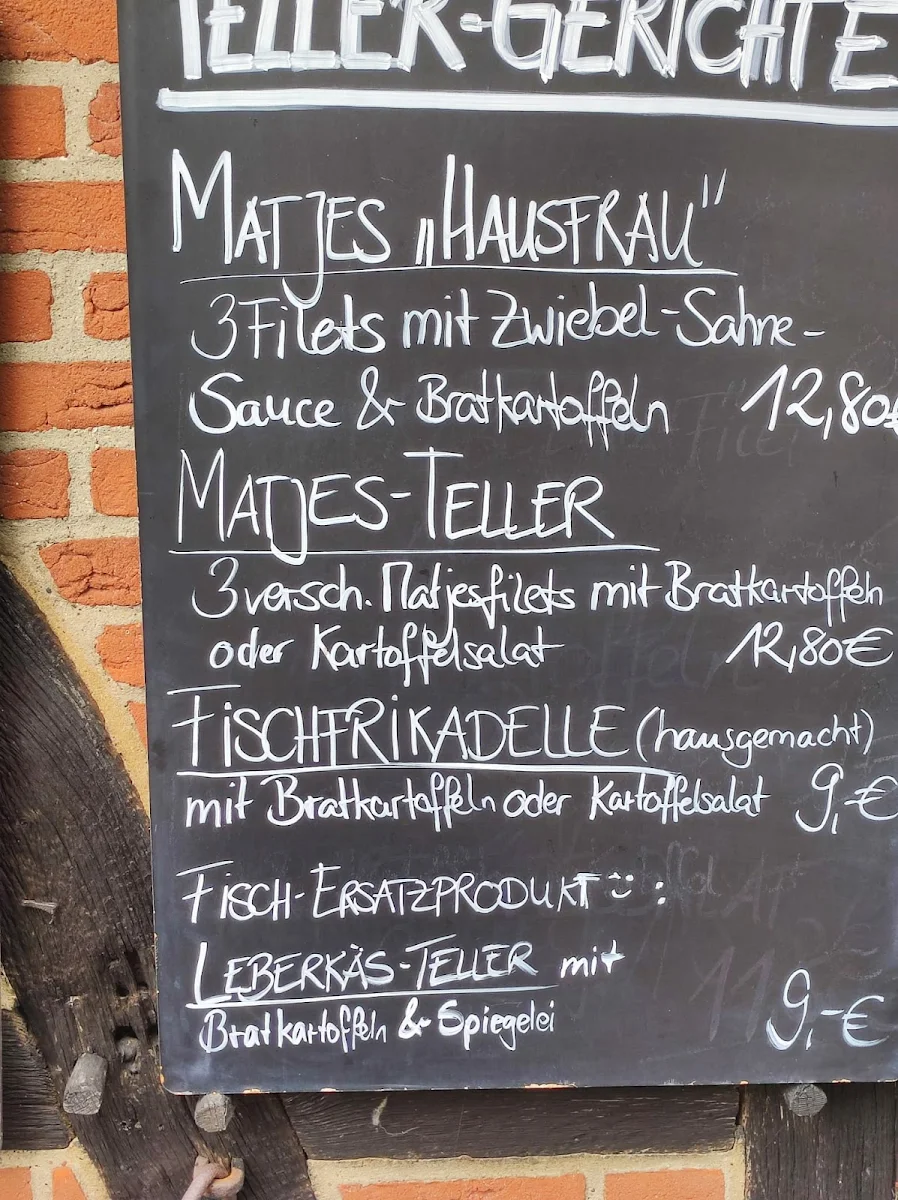 TELLER-GERICHTE
MATJES „HAUSFRAU"
3 Filets mit Zwiebel-Sahne-
Sauce & Bratkartoffeln 12,80€
MATJES-TELLER
3 versch. Matjesfilets mit Bratkartoffeln
oder Kartoffelsalat 12,80€
FISCHFRIKADELLE (hausgemacht)
mit Bratkartoffeln oder Kartoffelsalat 9,-€
FISCH-ERSATZPRODUKT :
LEBERKÄS-TELLER mit
Bratkartoffeln & Spiegelei 9,-€